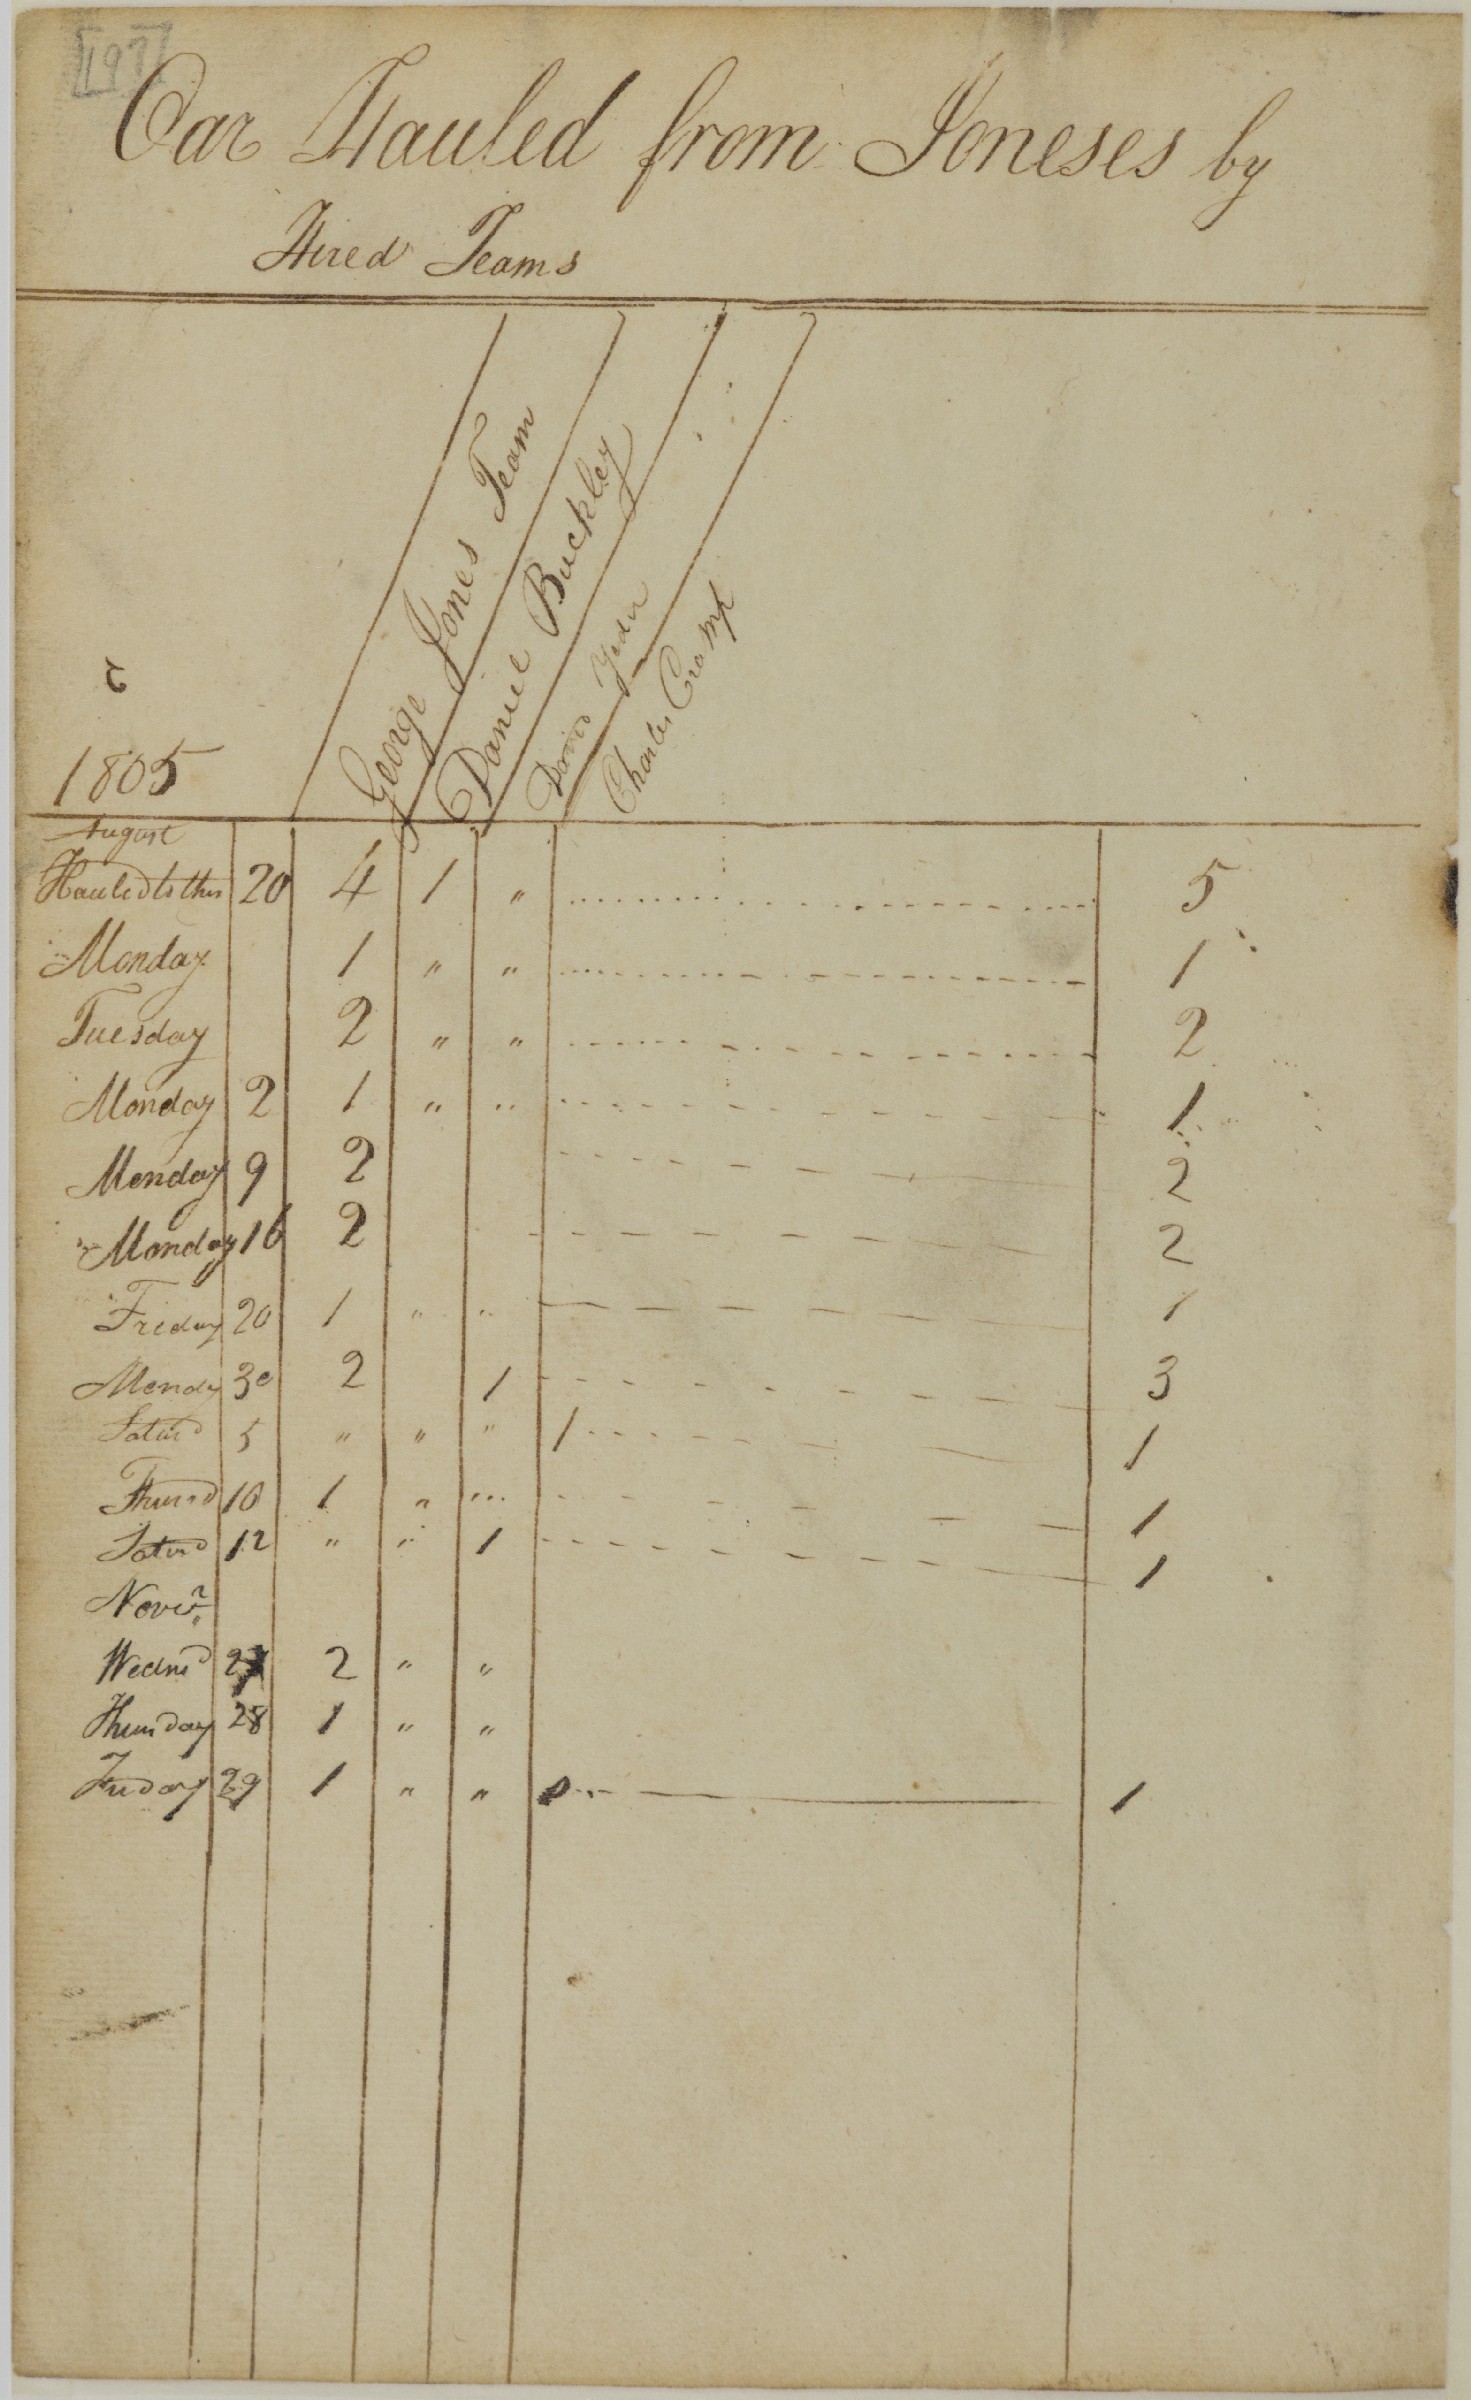 [197]
Oar Hauled from Joneses by
Hired Teams
George Jones Team
Daniel Buckley
David Yoder
Charles Cramp
1805
August
Hauled to this 20 4 1 " 5
Monday 1 " " 1
Tuesday 2 " " 2
Monday 2 1 " " 1
Monday 9 2 2
Monday 16 2 2
Friday 20 1 " " 1
Monday 30 2 1 3
Saturd 5 " " " 1 1
Thursd 10 1 " " 1
Saturd 12 " " 1 1
Novr
Wednsd 27 2 " "
Thursday 28 1 " "
Friday 29 1 " " 1